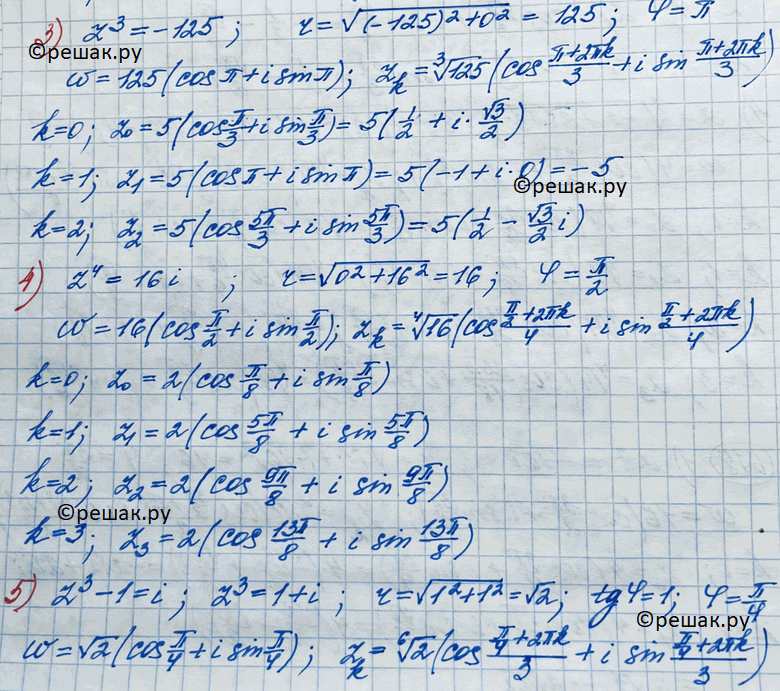 3) z³ = -125; r = √((-125)² + 0²) = 125; φ = π
©решак.ру
w = 125(cos π + i sin π); z_k = ³√125 (cos (π+2πk)/3 + i sin (π+2πk)/3)
k=0; z₀ = 5(cos π/3 + i sin π/3) = 5(1/2 + i · √3/2)
k=1; z₁ = 5(cos π + i sin π) = 5(-1 + i · 0) = -5
©решак.ру
k=2; z₂ = 5(cos 5π/3 + i sin 5π/3) = 5(1/2 - √3/2 i)
4) z⁴ = 16i; r = √(0² + 16²) = 16; φ = π/2
w = 16(cos π/2 + i sin π/2); z_k = ⁴√16 (cos (π/2 + 2πk)/4 + i sin (π/2 + 2πk)/4)
k=0; z₀ = 2(cos π/8 + i sin π/8)
k=1; z₁ = 2(cos 5π/8 + i sin 5π/8)
k=2; z₂ = 2(cos 9π/8 + i sin 9π/8)
©решак.ру
k=3; z₃ = 2(cos 13π/8 + i sin 13π/8)
5) z³ - 1 = i; z³ = 1 + i; r = √(1² + 1²) = √2; tg φ = 1; φ = π/4
©решак.ру
w = √2(cos π/4 + i sin π/4); z_k = ⁶√2 (cos (π/4 + 2πk)/3 + i sin (π/4 + 2πk)/3)